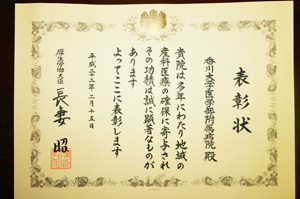 表彰状
香川大学医学部附属病院 殿
貴院は多年にわたり地域の
産科医療の確保に寄与され
その功績は誠に顕著なものが
あります
よってここに表彰します
平成二十二年二月十五日
厚生労働大臣
長妻 昭